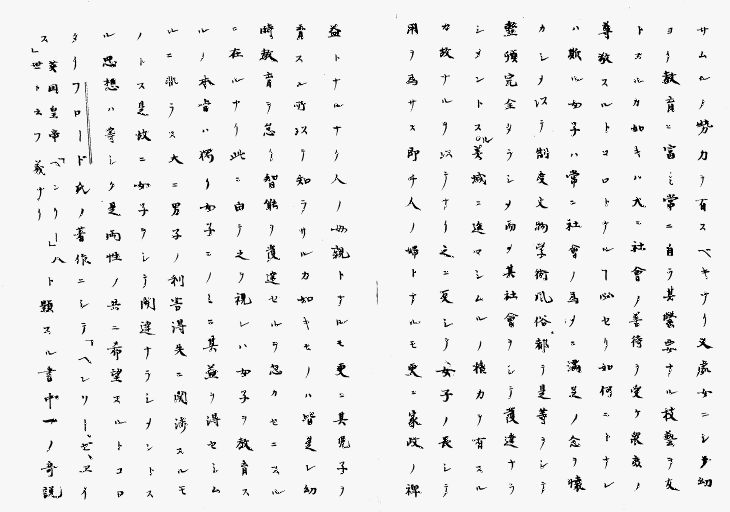 サムルノ勢力ヲ有スベキナリ又處女ニシテ幼
ヨリ教育ニ富ミ常ニ自ラ其緊要ナル技藝ヲ友
トスルカ如キハ大ニ社會ノ善待ヲ受ケ衆庶ノ
尊敬スルトコロトナルヿ必セリ如何ニトナレ
ハ斯ル女子ハ常ニ社會ノ為メニ滿足ノ念ヲ懐
カシメ以テ制度文物学術風俗都テ是等ヲシテ
整頓完全タラシメ而メ其社會ヲシテ護達ナラ
シメントスルノ美域ニ進マシムルノ権力ヲ有スル
カ故ナルヲ以テナリ之ニ反シテ女子ノ長シテ
用ヲ為サス即チ人ノ婦トナルモ更ニ家政ノ裨
益トナルナク人ノ母親トナルモ更ニ其児子ヲ
育スル所以ヲ知ラサルカ如キモノハ皆是レ幼
時教育ヲ怠リ智能ヲ護達セルヲ忽カセニスル
ニ在ルナリ此ニ由テ之ヲ視レハ女子ヲ教育ス
ルノ本旨ハ獨リ女子ニノミ其益ヲ得セシム
ルニ非ラス大ニ男子ノ利害得失ニ関渉スルモ
ノトス是故ニ女子ヲシテ開達ナラシメントス
ル思想ハ等シク是両性ノ共ニ希望スルトコロ
タリフロード氏ノ著作ニシテ「ヘンリー、ゼ、エイ
ス」英国皇帝「ヘンリー」八世ト云フ義ナリト題スル書中一ノ奇説